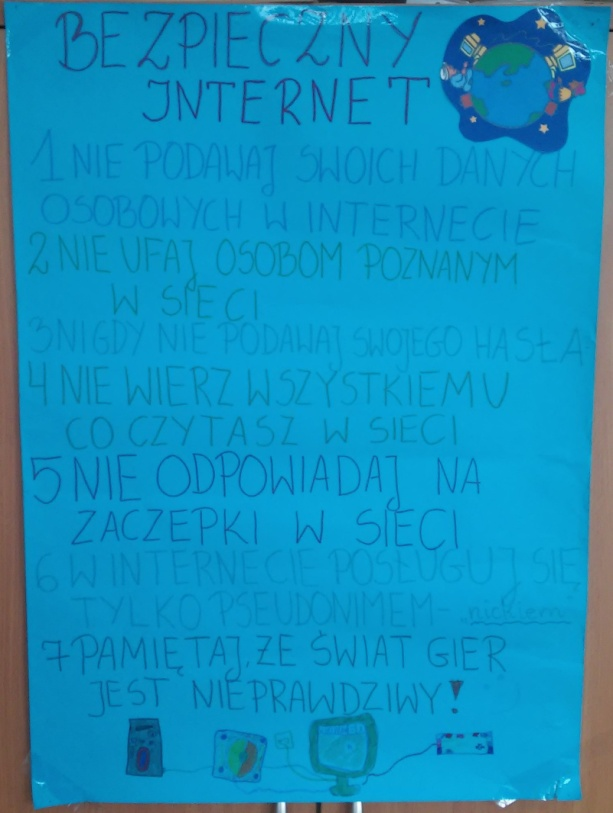 BEZPIECZNY
INTERNET
1 NIE PODAWAJ SWOICH DANYCH
OSOBOWYCH W INTERNECIE
2 NIE UFAJ OSOBOM POZNANYM
W SIECI
3 NIGDY NIE PODAWAJ SWOJEGO HASŁA
4 NIE WIERZ WSZYSTKIEMU
CO CZYTASZ W SIECI
5 NIE ODPOWIADAJ NA
ZACZEPKI W SIECI
6 W INTERNECIE POSŁUGUJ SIĘ
TYLKO PSEUDONIMEM- „nickiem”
7 PAMIĘTAJ, ŻE ŚWIAT GIER
JEST NIEPRAWDZIWY!